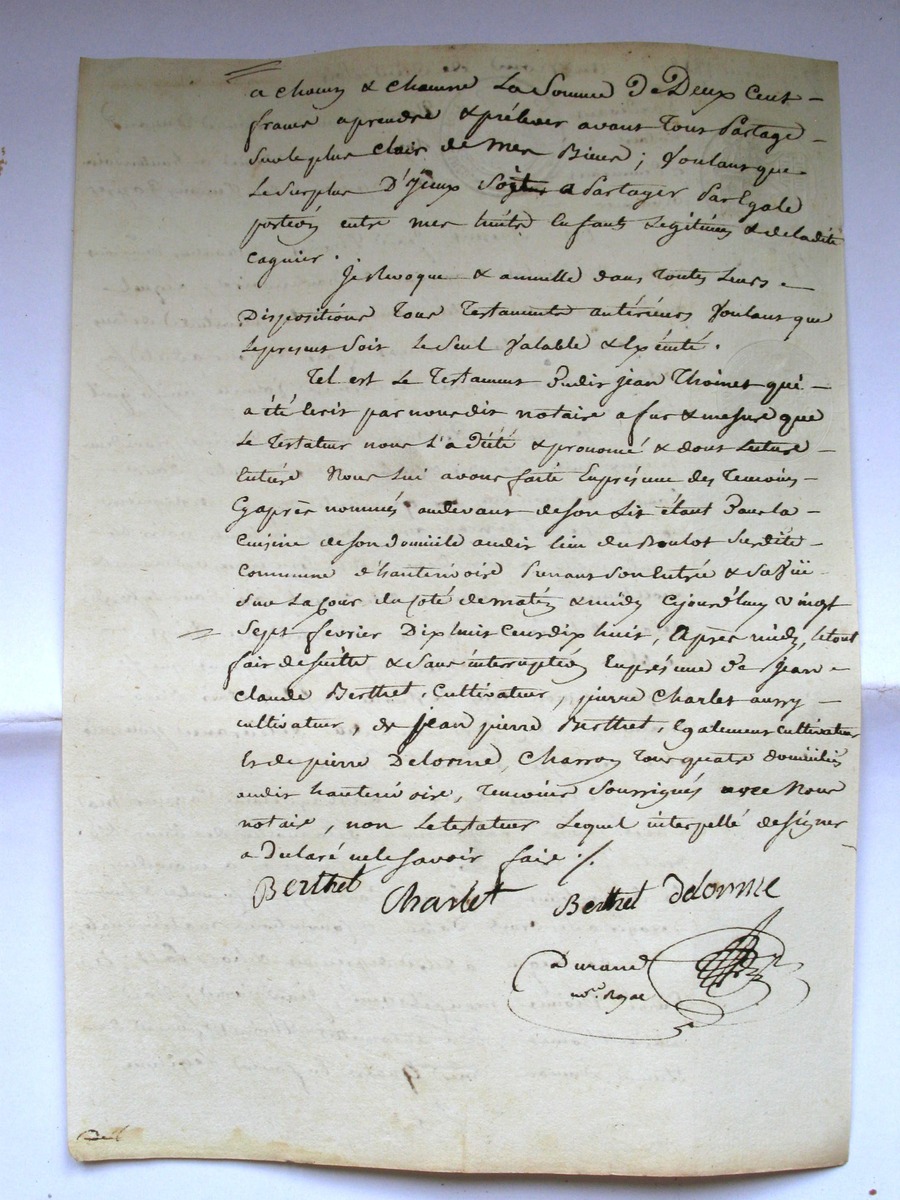 a chacun & chacune La Somme De Deux Cent
francs a prendre & préléver avant Tout Partage
Sur le plus clair de mes Biens ; Voulant que
Le Surplus D'yceux Soit a Partager Par Egale
portion entre mes huit Enfants Légitimes & de ladite
Cagnier .
Je Revoque & annulle dans Toutes Leurs
Dispositions Tous Testaments antérieurs Voulant que
Le present Soit Le Seul Valable & Exécuté .
Tel est Le Testament Dudit jean Thoinet qui
a été Ecrit par nous dit notaire a fur & mesure que
Le Testateur nous L'a dicté & prononcé & dont Lecture
Entière Nous Lui avons faite En présence des Temoins
Cyaprès nommés audevant de son Lit étant Dans la
Cuisine de son domicile audit lieu du Boulot Susdite
Commune d'hauterivoire Prenant Son Entrée & Sa Vüe
Sur La Cour du Coté de matin & midy Cejourd'huy vingt
Sept fevrier Dix huit Cent dix huit, Après midy, Le tout
fait de suitte & Sans interruption En présence De jean
Claude Berthet, Cultivateur, pierre Charlet aussy
cultivateur, de jean pierre Berthet, Egalement Cultivateur
Et de pierre Delorme, Charron Tous quatre domiciliés
audit hauterivoire, Temoins Soussignés avec Nous
notaire, non Le testateur Lequel interpellé de signer
a Declaré ne le Savoir faire ./.
Berthet Charlet Berthet Delorme
Durand
nre. Royal